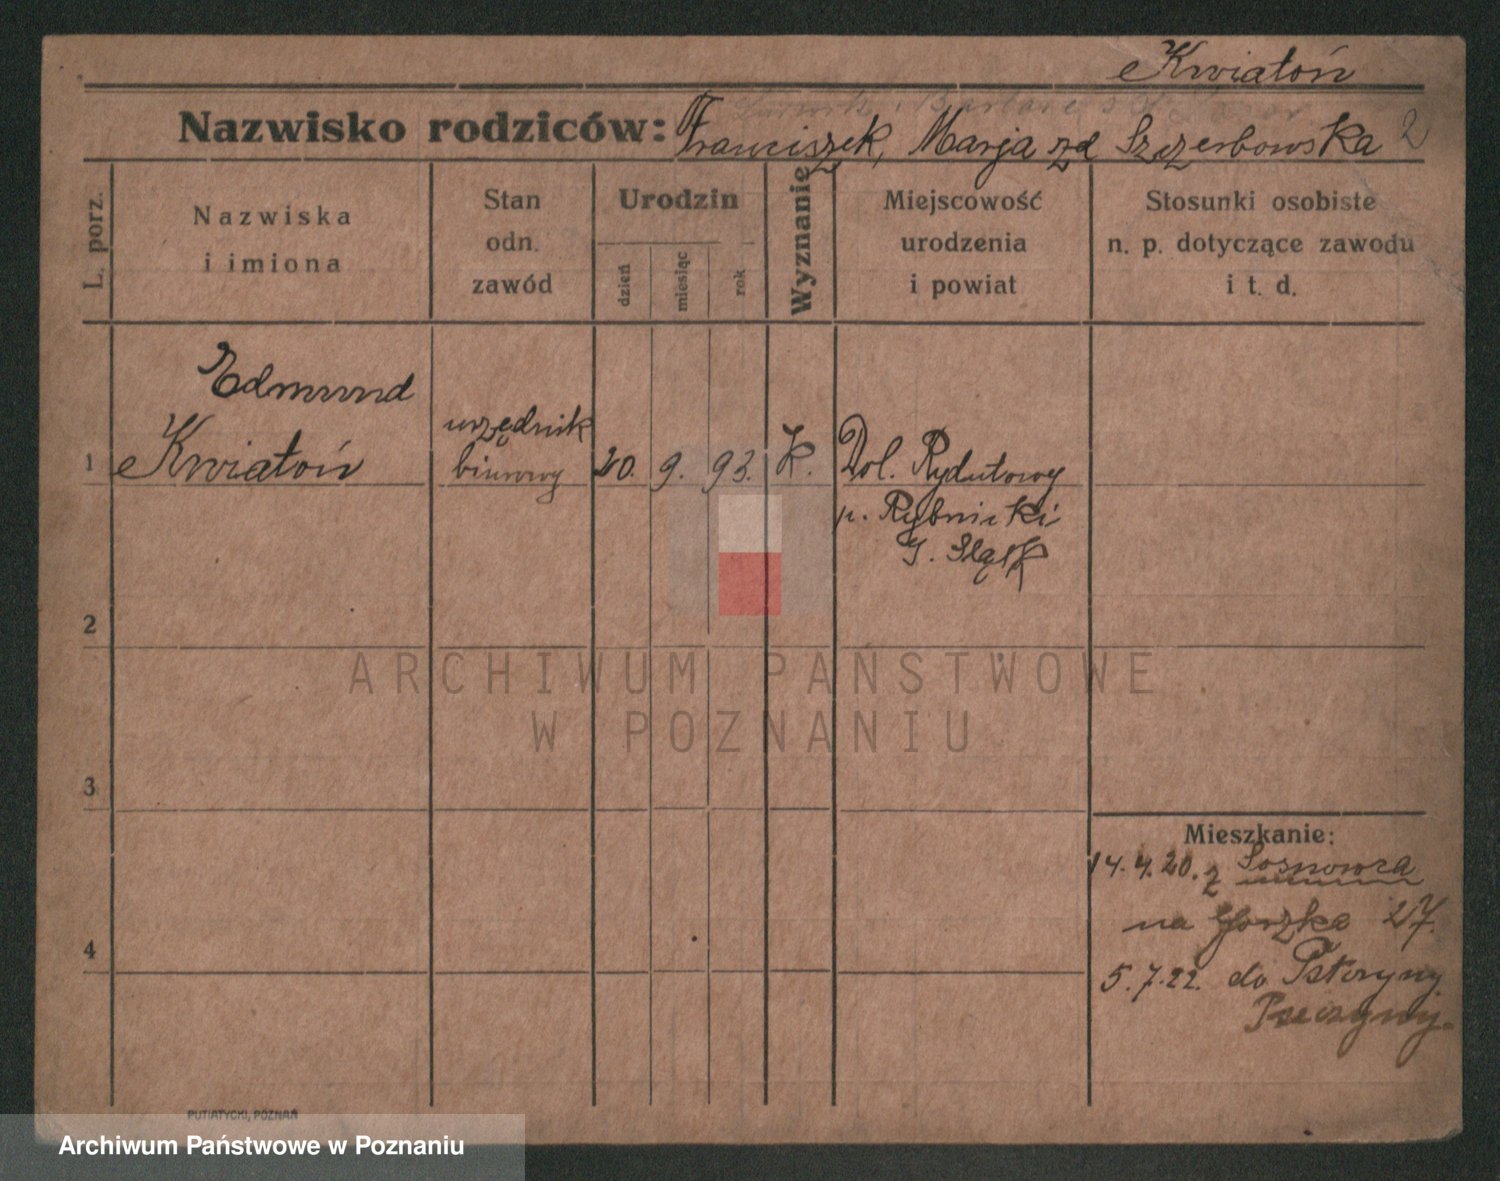 Kwiatoń
Nazwisko rodziców: Franciszek, Marja zd Szczerbowska 2
L. porz.
Nazwiska
i imiona
Stan
odn.
zawód
Urodzin
dzień
miesiąc
rok
Wyznanie
Miejscowość
urodzenia
i powiat
Stosunki osobiste
n. p. dotyczące zawodu
i t. d.
Edmund
1 Kwiatoń
urzędnik
biurowy
20. 9. 93. k.
Dol. Rydułtowy
p. Rybnicki
G. Śląsk
2
3
4
Mieszkanie:
14.4.20. z Sosnowca
na 27.
5.7.22. do
PUTIATYCKI, POZNAŃ
ARCHIWUM PAŃSTWOWE
W POZNANIU
Archiwum Państwowe w Poznaniu